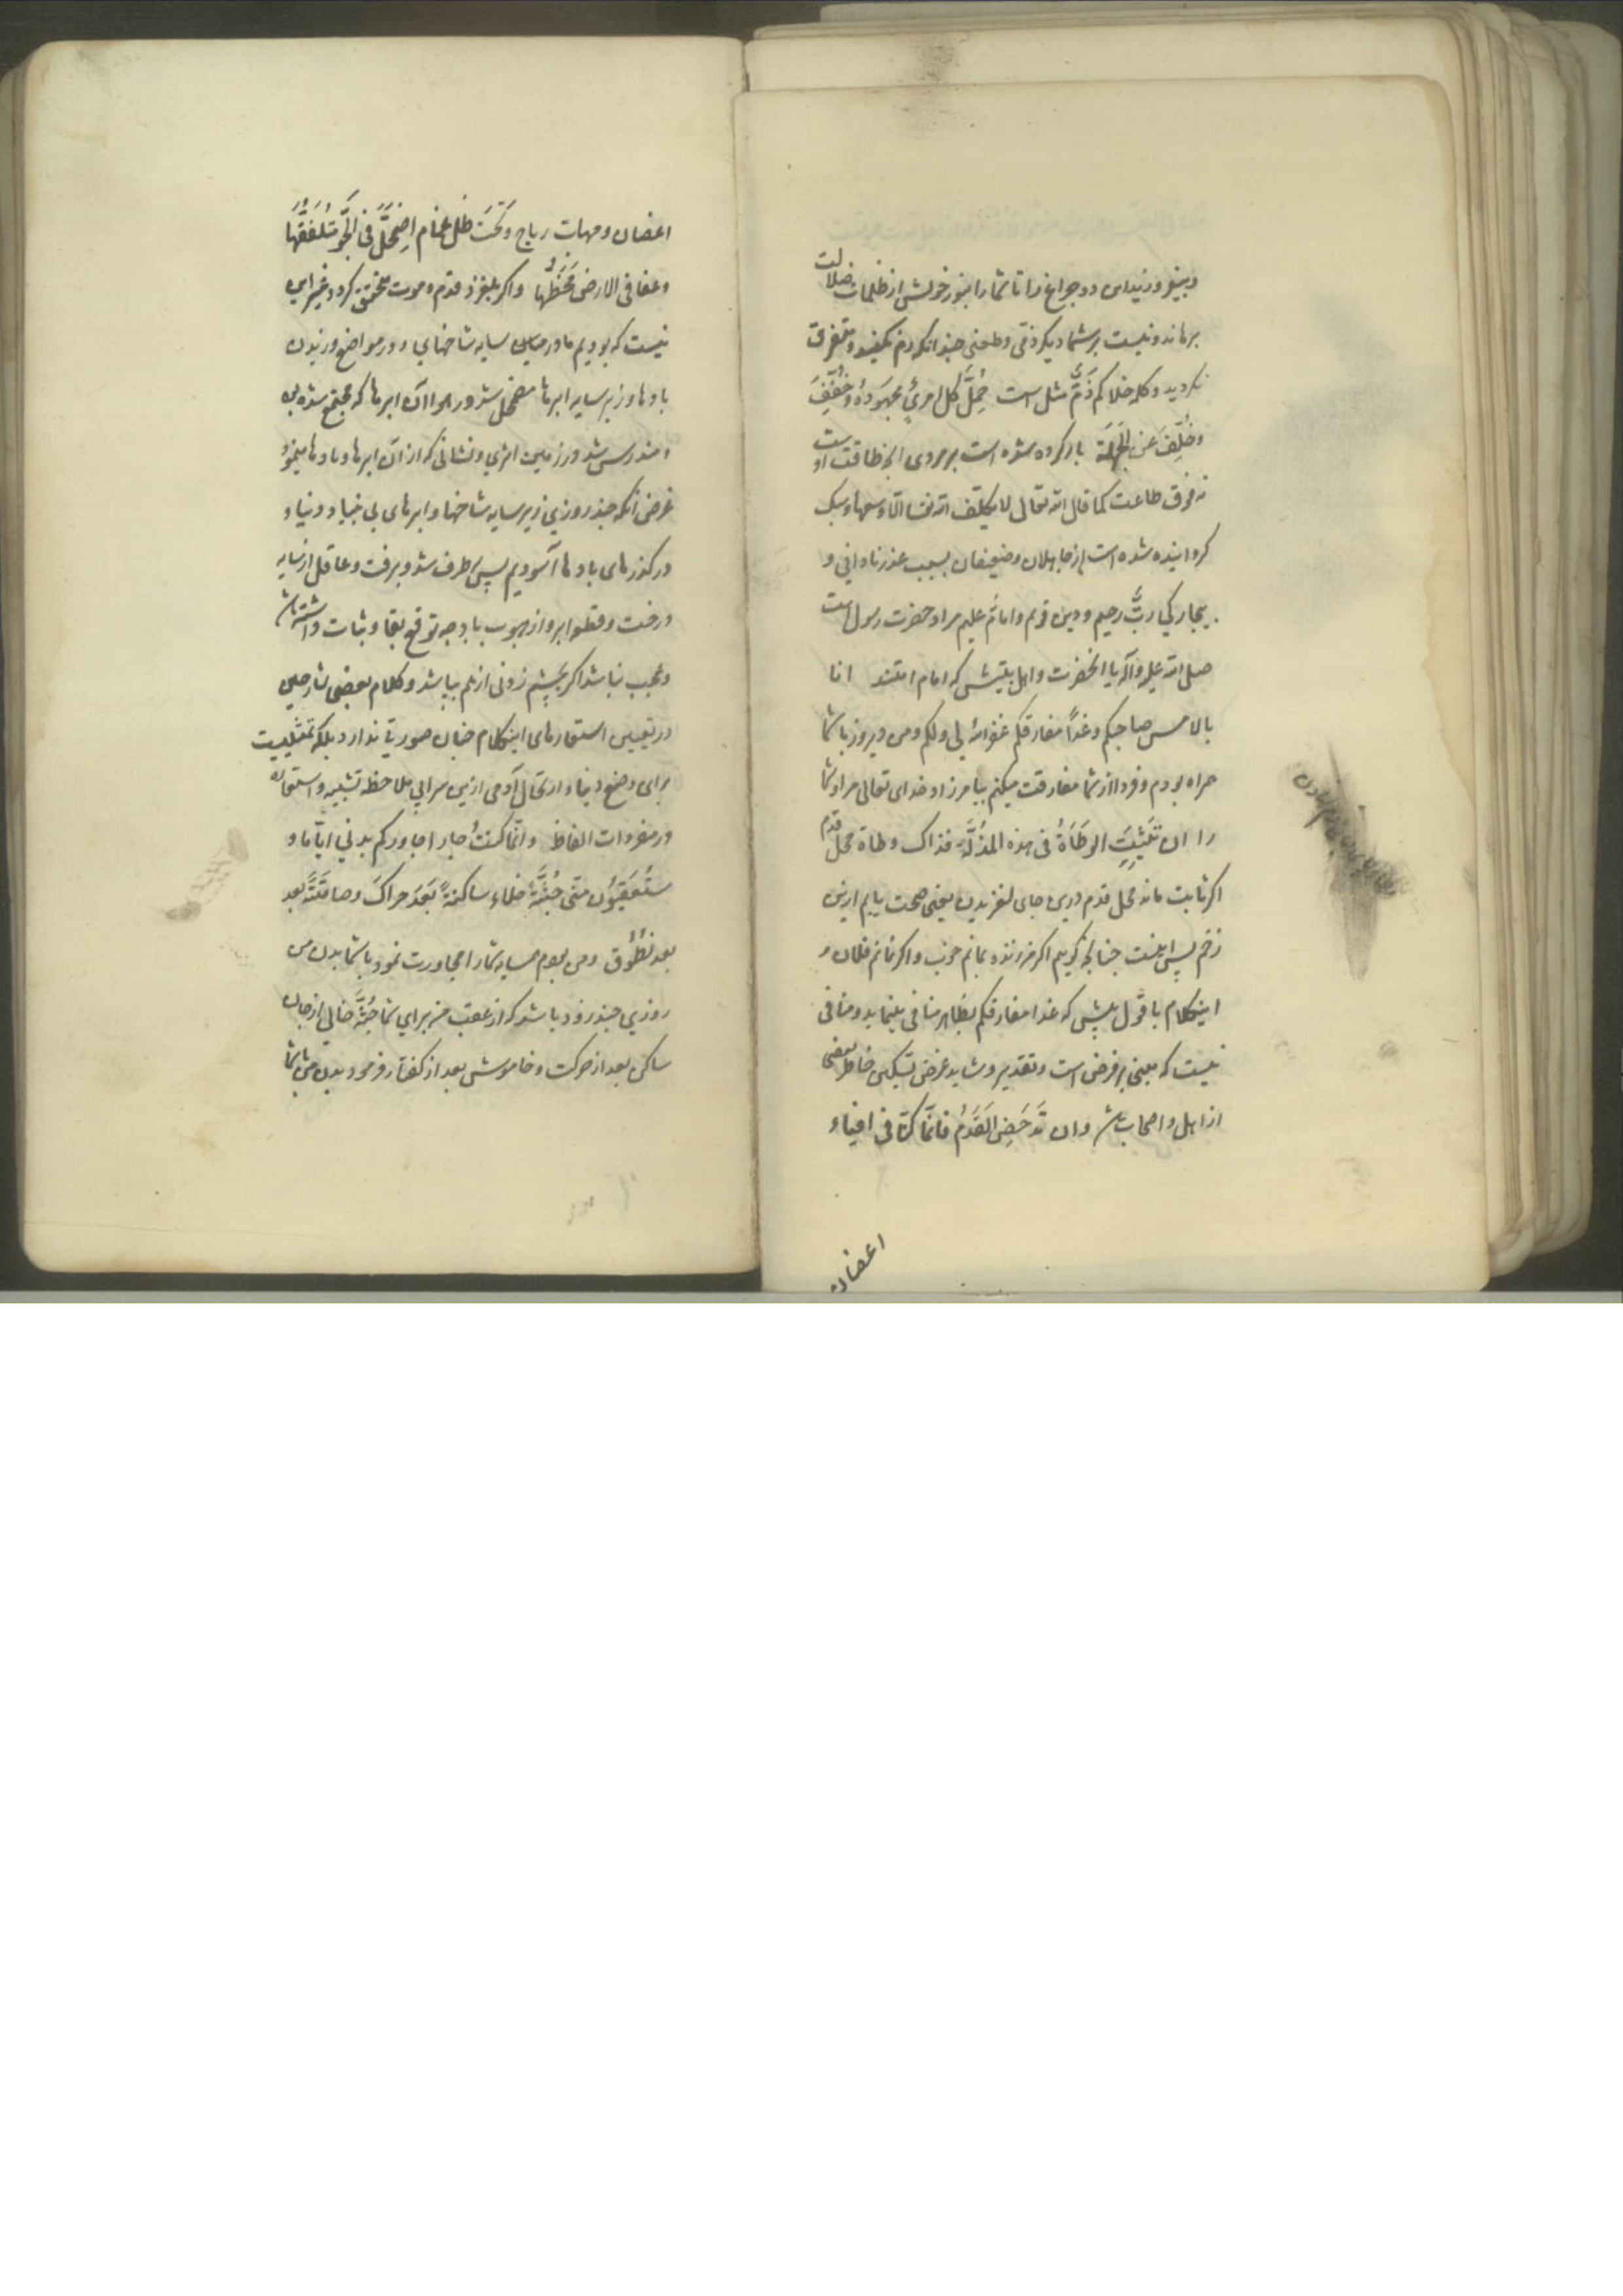 وبیفروزید این دو چراغ را تا شما را بنور خویش از ظلمات ضلالت
برهاند و نیست بر شما دیگر ذمّی و طعنی چندانکه رم نکنید و متفرق
نگردید و کلمه خلاکم ذَمٌّ مثل است حُمِّلَ کل امرئٍ مجهودَهُ و خُفِّفَ
وخُفِّفَ عن الجَهَلَة بار کرده شده است بر مردی انچه طاقت اوست
نه فوق طاعت کما قال الله تعالی لا یکلّف الله نفسا الّا وسعها و سبک
گردانیده شده است از جاهلان و ضعیفان بسبب عذر نادانی و
بیچارگی ربٌّ رحیم و دین قویم و امام علیم مراد حضرت رسول است
صلی الله علیه وآله یا انحضرت و اهل بیتش که امام امتند انا
بالامس صاحبکم و غداً مفارقکم غفر الله لی ولکم و من دیروز با شما
همراه بودم و فردا از شما مفارقت میکنم بیامرزاد خدای تعالی مرا و شما
را ان تَثبِتِ الوَطَأَةُ فی هذه المَزَلَّة فذاک وطاة محل قدم
اکر ثابت ماند محل قدم درین جای لغزیدن یعنی صحت یابم ازین
زخم پس اینست چنانچه گویم اکر من زنده بمانم خوب و اکر نمانم فلان و
اینکلام با قول پیش که غدا مفارقکم بظاهر منافی مینماید و منافی
نیست که مبنی بر فرض است و تقدیر و شاید غرض تسکین خاطر بعضی
از اهل و اصحاب باشد وان تَدحَضِ القَدَمُ فانّما کنّا فی افیاء
اغصان
اغصان و مهاب ریاح وَتَحتَ ظل غمام اِضمَحَلَّ فی الجَوِّ مُتَلَفَّقُها
وعفا فی الارض مَخَطُّها و اکر بلغزد قدم و موت متحقق کردد غیر این
نیست که بودیم ما در میان سایه شاخهای و در مواضع وزیدن
بادها و زیر سایه ابرها مضمحل شد در هوا آن ابرها که مجتمع شده بود
و مندرس شد در زمین اثری و نشانی که از آن ابرها و بادها مینمود
غرض آنکه چند روزی زیر سایه شاخها و ابرهای بی بنیاد دنیا و
در گذرهای بادها آسودیم پس برطرف شد و برفت و عاقل از سایه
درخت و قطعه ابر و از هبوب باد چه توقع بقا و ثبات داشته باشد
و عجب نباشد اکر بچشم زدنی از هم بپاشد و کلام بعضی شارحین
در تعیین استعارهای اینکلام چنان صورتی ندارد بلکه تمثیلیست
برای وضع دنیا و ارتحال آدمی ازین سرای بی ملاحظه تشبیه و استعاره
در مفردات الفاظ وانّما کنتُ جارا جاورکم بدنی ایّاما و
ستُعقَبون منّی جُثَّةً خلاء ساکنةً بَعدَ حراکٍ وصامتةً بعد
بعد نُطُوق و من بودم همسایه شما را مجاورت نمود با شما بدن من
روزی چند زود باشد که از عقب من برای شما جُثّه خالی از جان
ساکن بعد از حرکت و خاموش بعد از گفتار